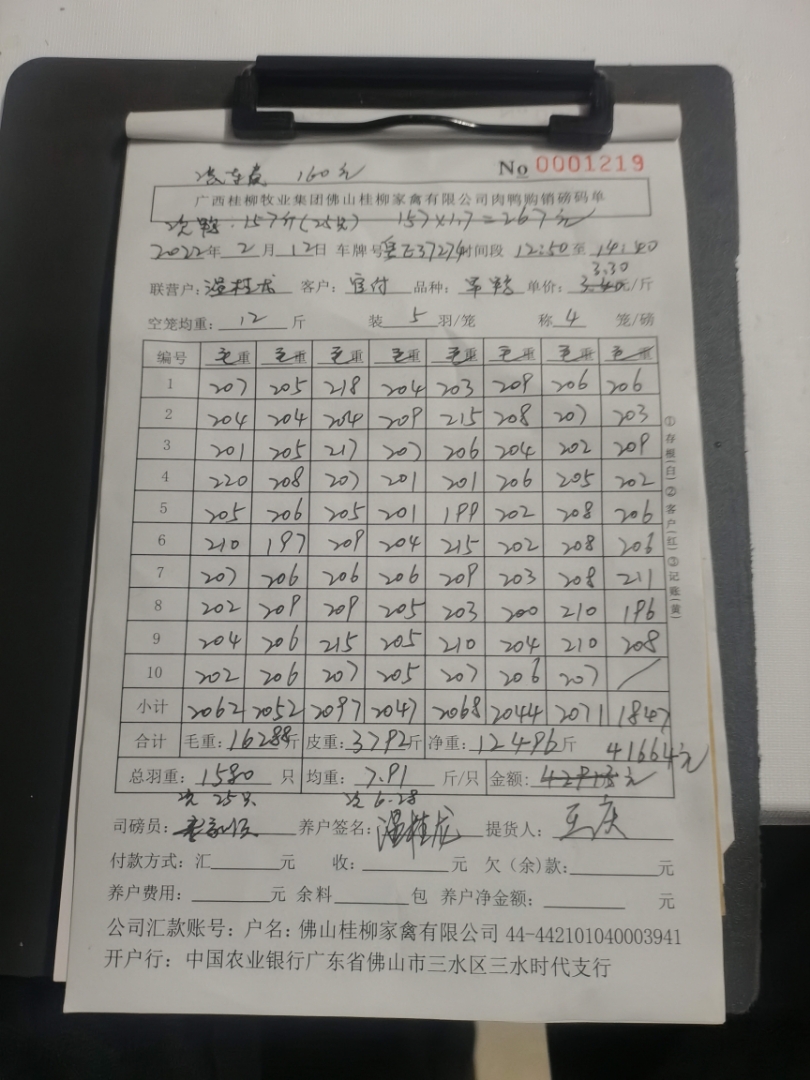 160元 No 0001219
广西桂柳牧业集团佛山桂柳家禽有限公司肉鸭购销磅码单
次鸭 157斤(25只) 157×1.7=267元
2022年2月12日 车牌号 37274 时间段 12:50 至 14:40
3.30
联营户: 温桂龙 客户: 官付 品种: 单价: 3.40元/斤
空笼均重: 12 斤 装 5 羽/笼 称 4 笼/磅
编号 毛重 毛重 毛重 毛重 毛重 毛重 毛重 毛重
1 207 205 218 204 203 209 206 206
2 204 204 204 209 215 208 207 203
3 201 205 217 207 206 204 202 209
4 220 208 207 201 201 206 205 202
5 205 206 205 201 199 202 208 206
6 210 197 209 204 215 202 208 206
7 207 206 206 206 209 203 208 211
8 202 209 209 205 203 200 210 196
9 204 206 215 205 210 204 210 208
10 202 206 207 205 207 206 207 /
小计 2062 2052 2097 2047 2068 2044 2071 1847
合计 毛重: 16288斤 皮重: 3792斤 净重: 12496斤 41664元
总羽重: 1580 只 均重: 7.91 斤/只 金额: 元
次 25只 次 6.28
司磅员: 养户签名: 温桂龙 提货人:
付款方式: 汇 元 收: 元 欠(余)款: 元
养户费用: 元 余料 包 养户净金额: 元
公司汇款账号: 户名: 佛山桂柳家禽有限公司 44-442101040003941
开户行: 中国农业银行广东省佛山市三水区三水时代支行
①存根(白)②客户(红)③记账(黄)